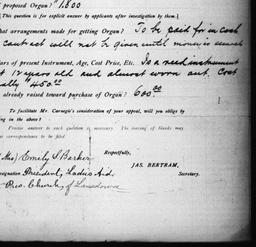 proposed Organ? 1800
[This question is for explicit answer by applicants after investigation by them.]
hat arrangements made for getting Organ? To be paid for in cash
contract will not be given until money is secured
lars of present Instrument, Age, Cost Price, Etc. Is a reed instrument
12 years old and almost worn out. Cost
ally $450.00
already raised toward purchase of Organ? 600.00
To facilitate Mr. Carnegie's consideration of your appeal, will you oblige by
ing in the above?
Precise answer to each question is necessary. The leaving of blanks may
correspondence to be filed.
Respectfully,
JAS. BERTRAM,
Secretary.
(Mrs) Emily S. Barker
esignation President, Ladies Aid,
Pres. Church, of Lansdowne